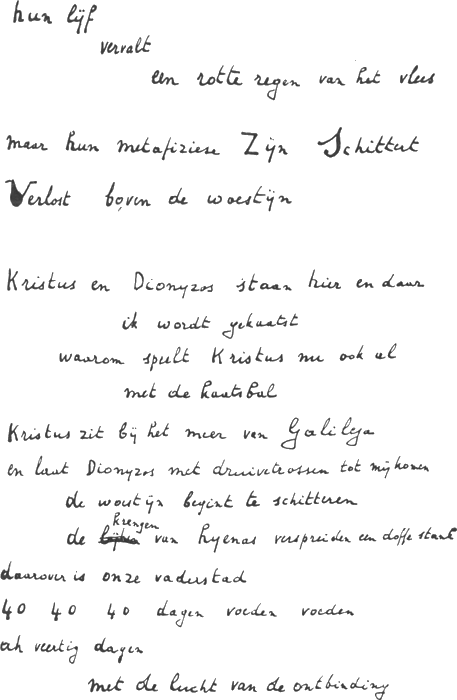 hun lijf
vervalt
een rotte regen van het vlees
maar hun metafiziese Zijn Schittert
Verlost boven de woestijn
Kristus en Dionyzos staan hier en daar
ik wordt gekaatst
waarom speelt Kristus nu ook al
met de kaatsbal
Kristus zit bij het meer van Galileja
en laat Dionyzos met druivetrossen tot mij komen
de woestijn begint te schitteren
krengen
de van hyenas verspreiden een doffe stank
daarover is onze vaderstad
40 40 40 dagen voeden voeden
ah veertig dagen
met de lucht van de ontbinding